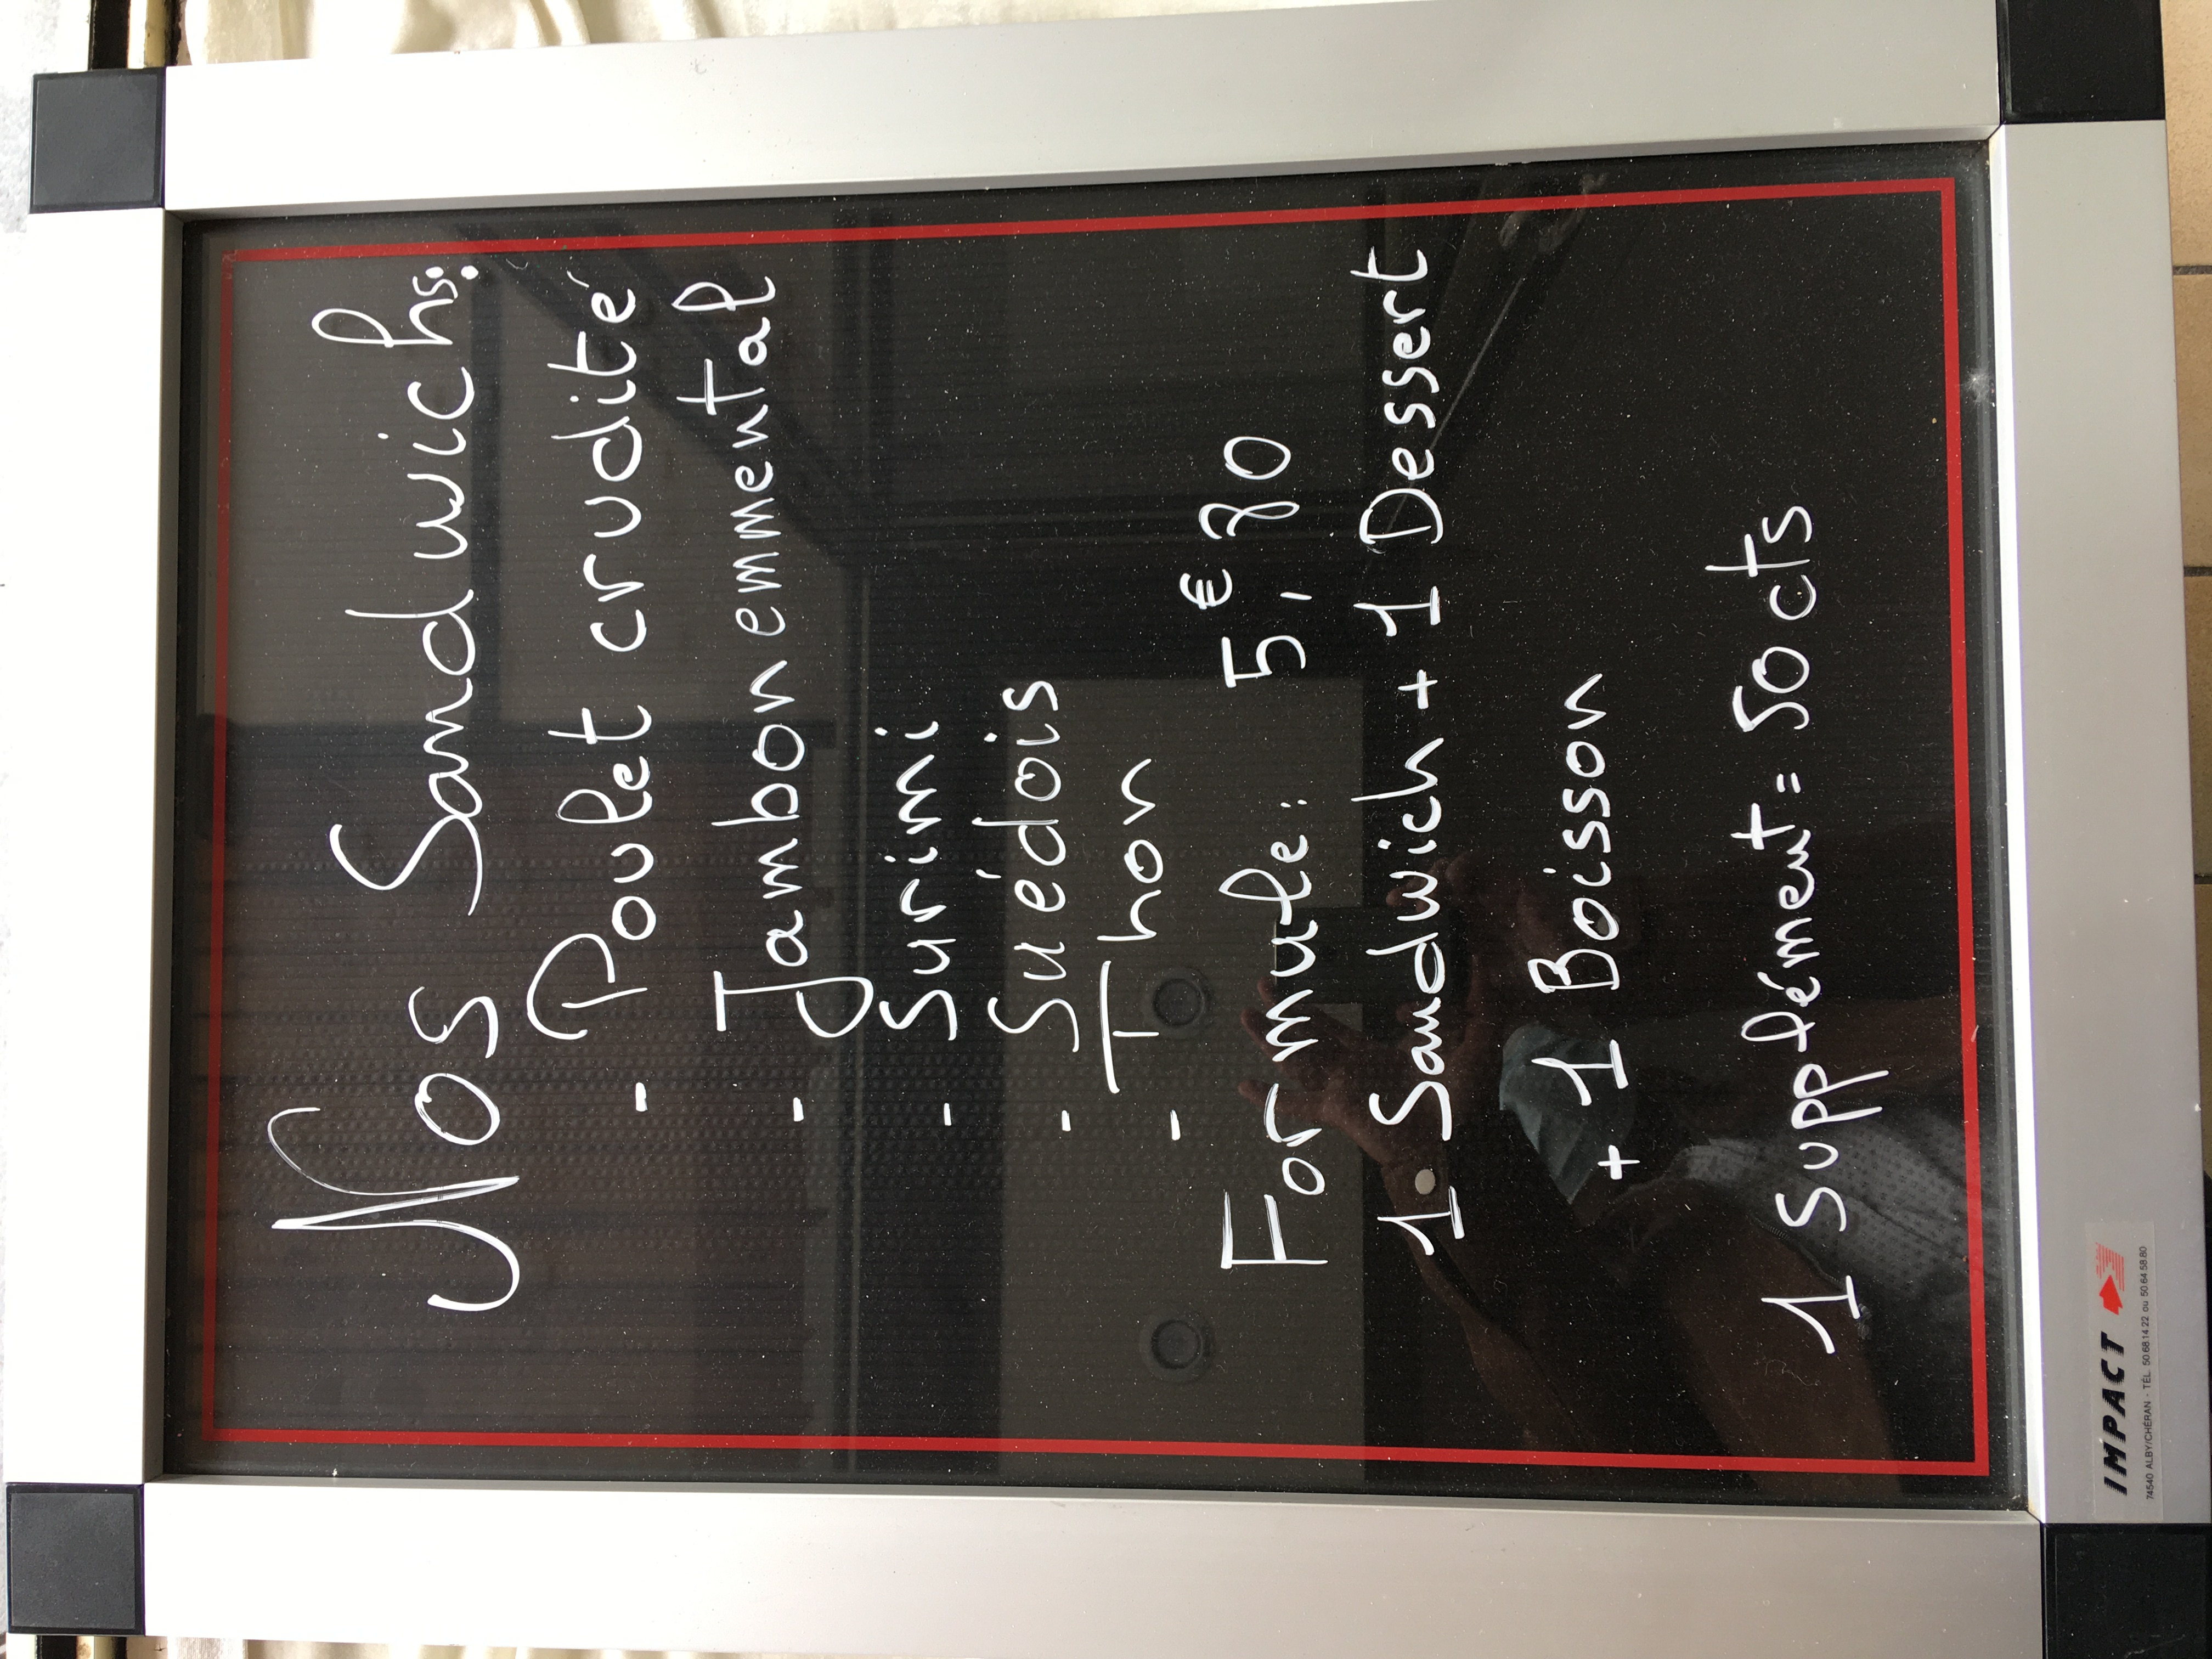 Nos Sandwichs:
- Poulet crudité
- Jambon emmental
- Surimi
- Suédois
- Thon
Formule: 5,€30
1 Sandwich + 1 Dessert
+ 1 Boisson
1 supplément = 50 cts
IMPACT
74540 ALBY/CHÉRAN - TÉL. 50.68.14.22 ou 50.64.58.80